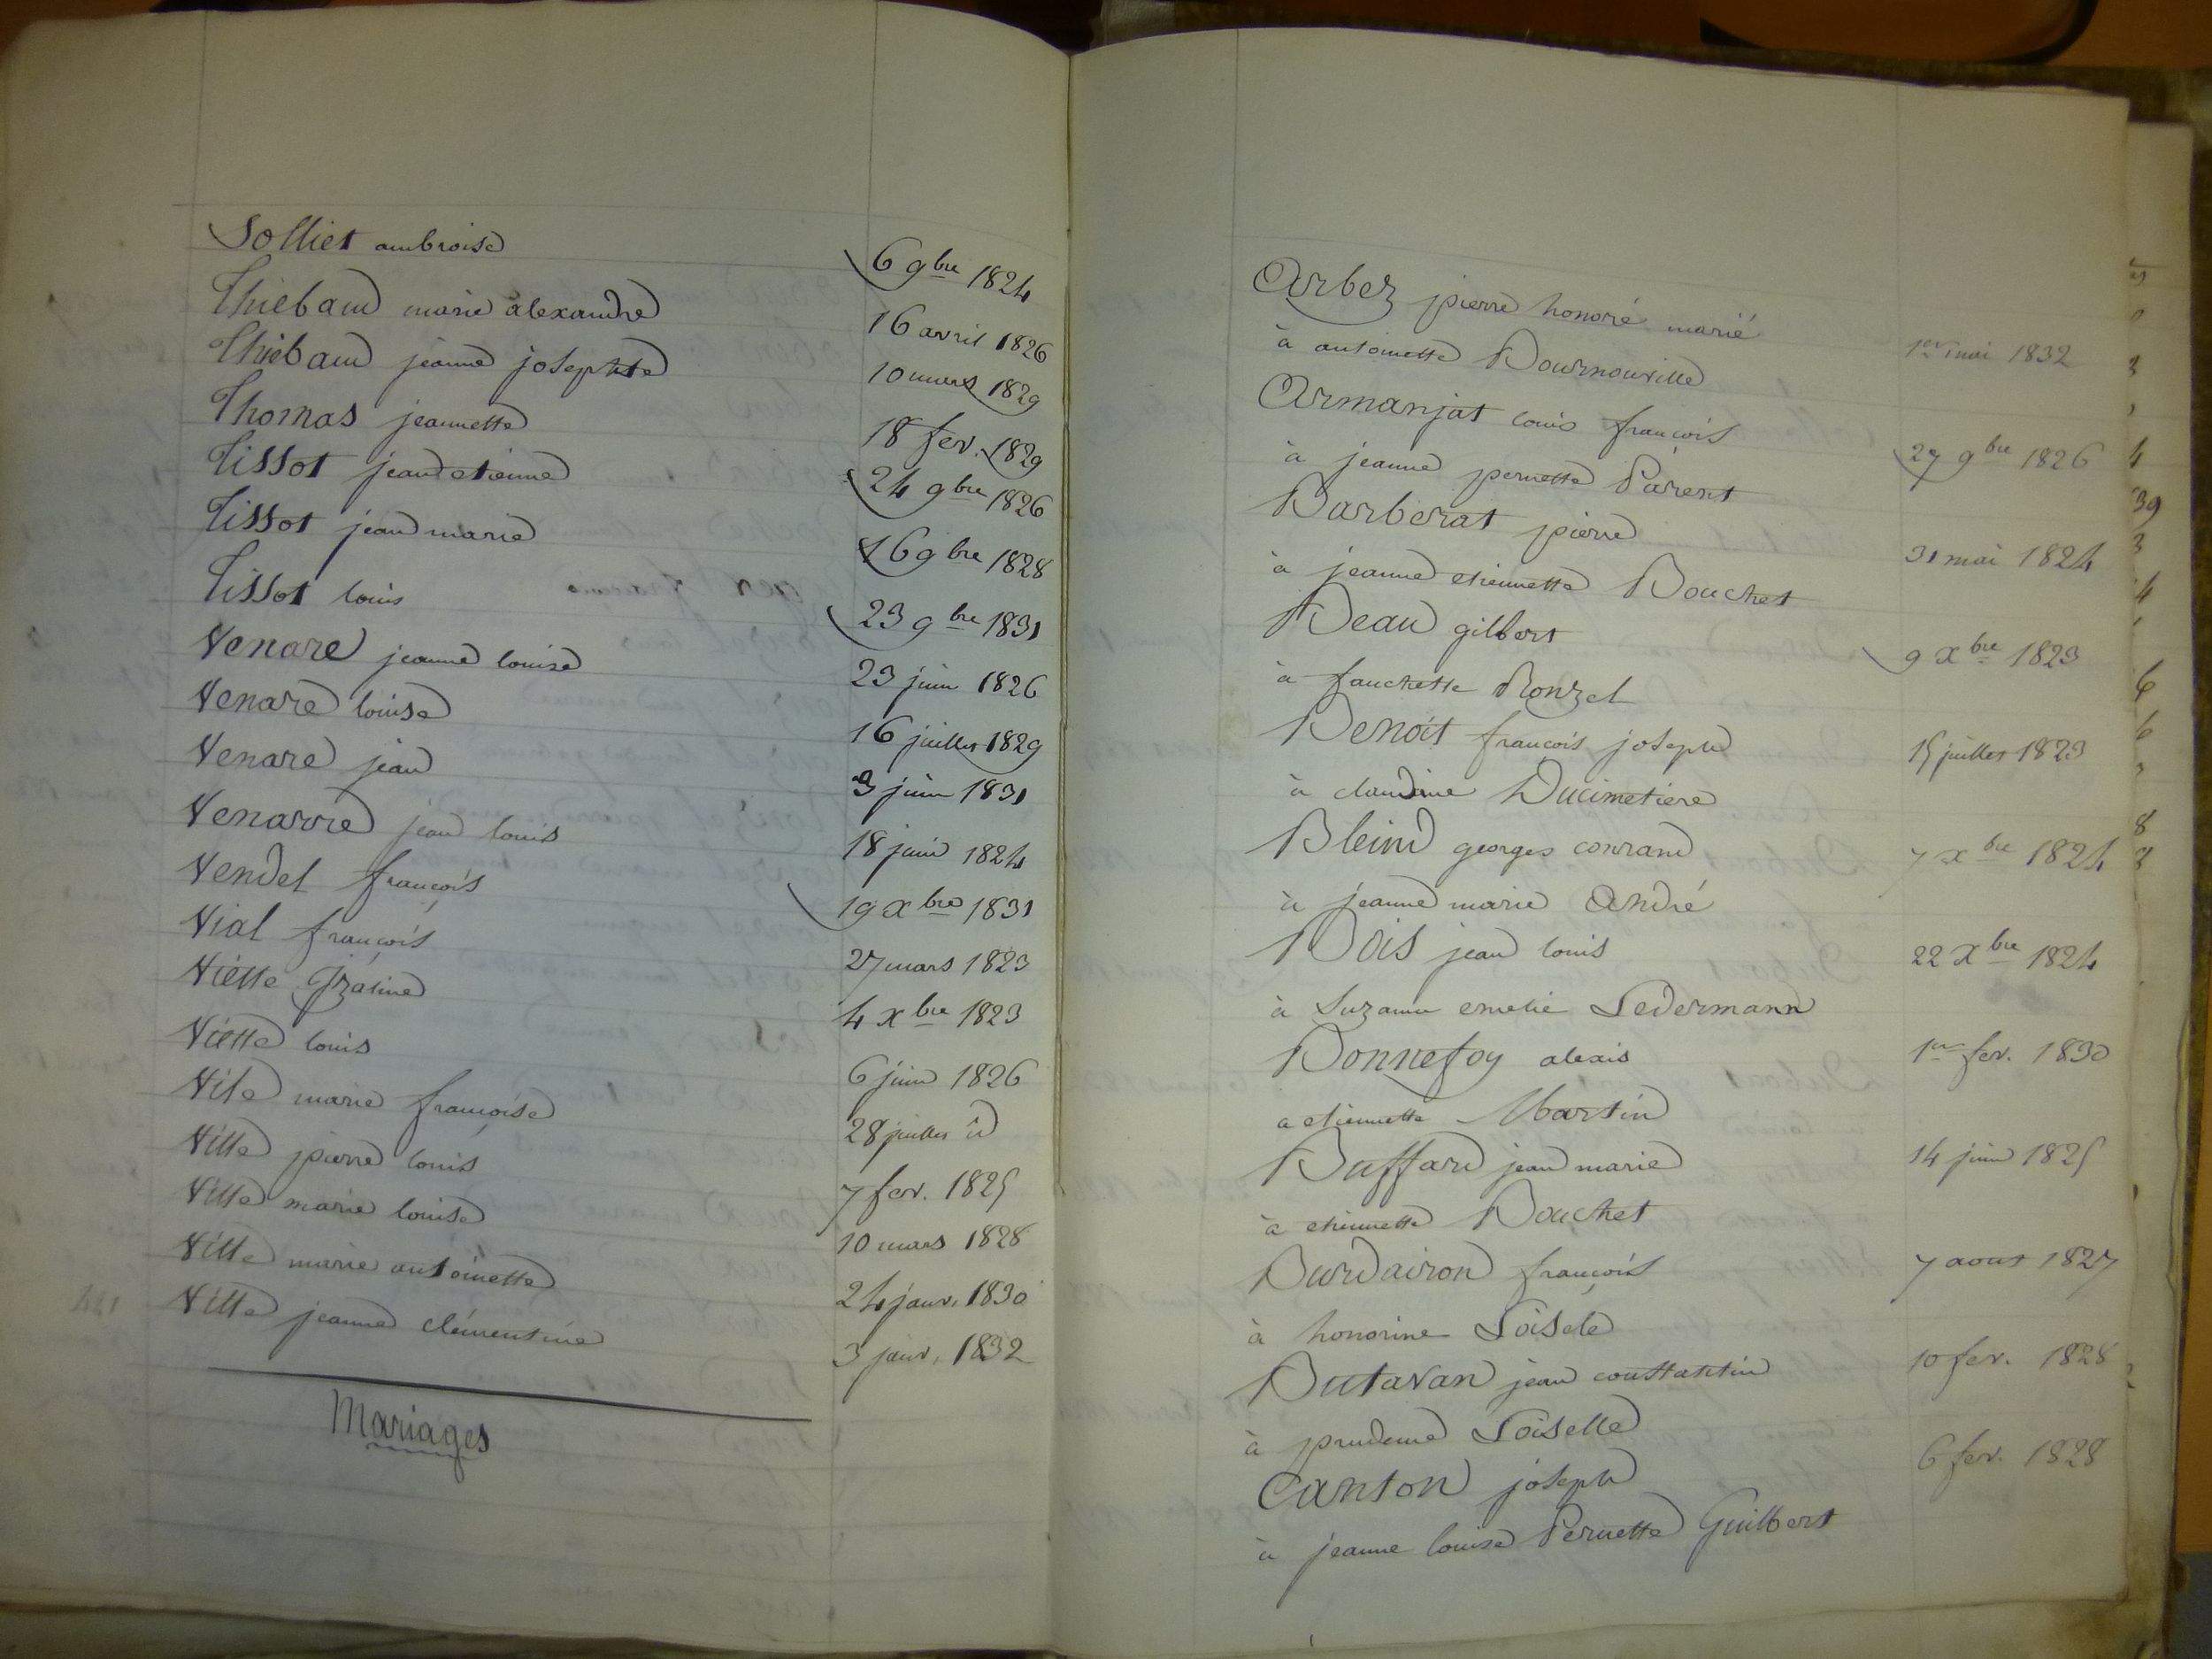 Solliet ambroise 6 9bre 1824
Thiebaud marie alexandre 16 avril 1826
Thiebaud jeanne josephte 10 mars 1829
Thomas jeannette 18 fev. 1829
Tissot jean etienne 24 9bre 1826
Tissot jean marie 16 9bre 1828
Tissot louis 23 9bre 1831
Venare jeanne louise 23 juin 1826
Venare louise 16 juillet 1829
Venare jean 3 juin 1831
Venarre jean louis 18 juin 1824
Vendel françois 19 xbre 1831
Vial françois 27 mars 1823
Viette 4 xbre 1823
Viette louis 6 juin 1826
Vite marie françoise 28 juillet id
Vitte pierre louis 7 fev. 1825
Vitte marie louise 10 mars 1828
Vitte marie antoinette 24 janv. 1830
Vitte jeanne clémentine 3 janv. 1832
Mariages
Arbez pierre honoré marié
à antoinette Bournonville 1er mai 1832
Armanjat louis françois
à jeanne pernette Parent 27 9bre 1826
Barberat pierre
à jeanne etiennette Bouchet 31 mai 1824
Beau gilbert
à fanchette Ronzel 9 xbre 1823
Benoit françois joseph
à claudine Ducimetiere 15 juillet 1823
Bleind georges conrand
à jeanne marie André 7 xbre 1824
Bois jean louis
à Suzanne emelie Ledermann 22 xbre 1824
Bonnefoy alexis
a etiennette Martin 1er fev. 1830
Buffard jean marie
à etiennette Bouchet 14 juin 1825
Burdairon françois
à honorine Loisele 7 aout 1827
Butavan jean constantin
à prudence Loiselle 10 fev. 1828
Canton joseph
à jeanne louise Pernette Guilbert 6 fev. 1828